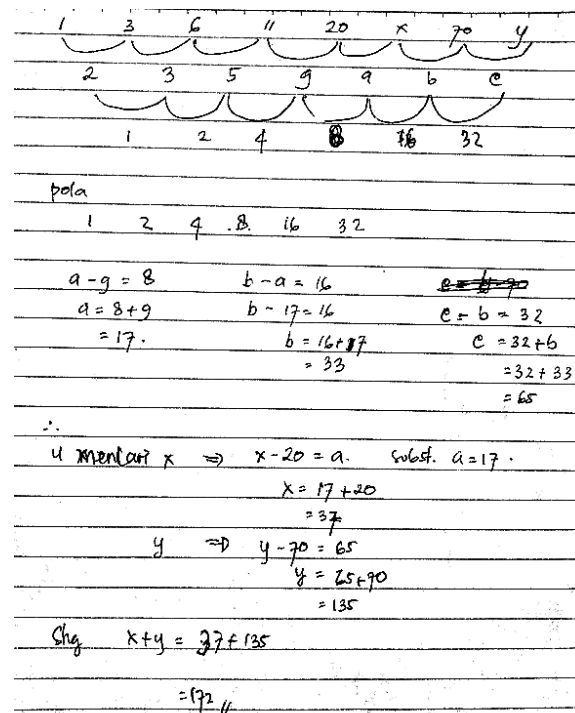 1 3 6 11 20 x 70 y
2 3 5 9 a b c
1 2 4 8 16 32
pola
1 2 4 8 16 32
a - 9 = 8 b - a = 16
a = 8 + 9 b - 17 = 16 c - b = 32
= 17. b = 16 + 17 c = 32 + b
= 33 = 32 + 33
= 65
∴
u mencari x ⇒ x - 20 = a. subst. a = 17.
x = 17 + 20
= 37
y ⇒ y - 70 = 65
y = 65 + 70
= 135
Shg x + y = 37 + 135
= 172 //